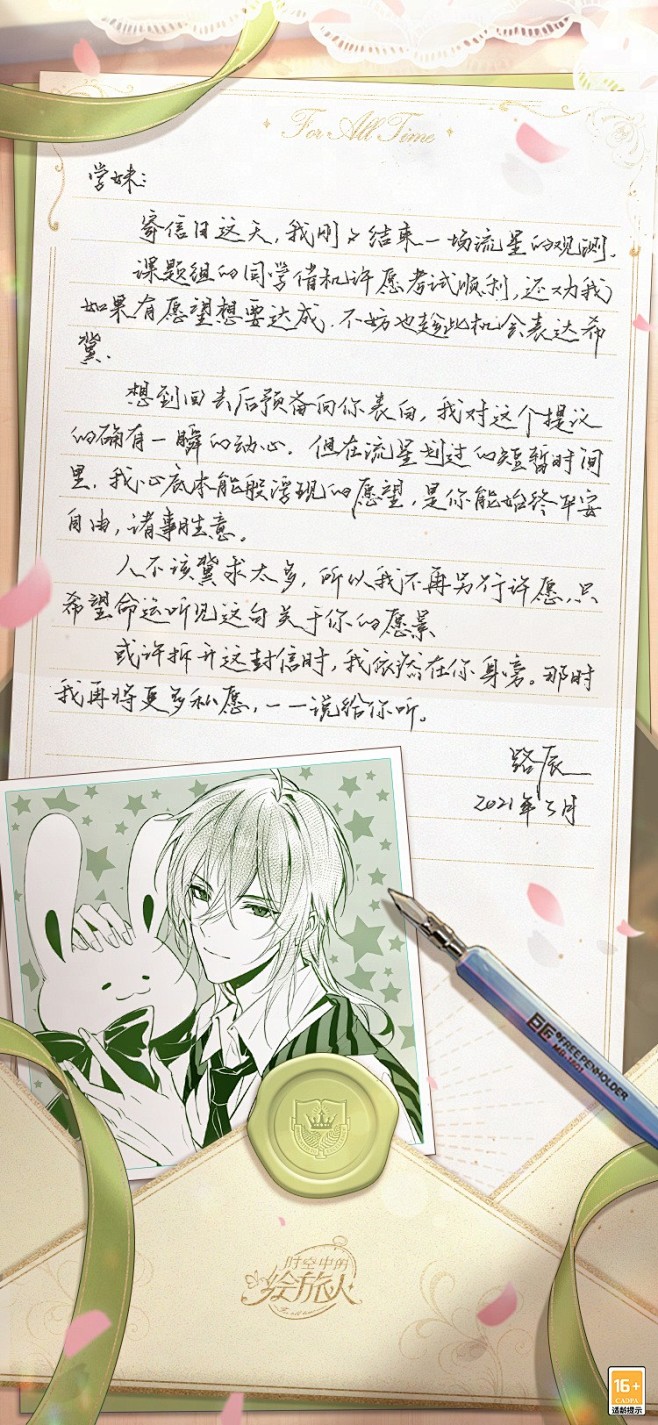 For All Time
学妹:
寄信日这天,我刚刚结束一场流星的观测.
课题组的同学借机许愿考试顺利,还劝我
如果有愿望想要达成.不妨也趁此机会表达希
冀.
想到回去后预备向你表白,我对这个提议
的确有一瞬的动心.但在流星划过的短暂时间
里,我心底本能般浮现的愿望,是你能始终平安
自由,诸事胜意。
人不该冀求太多,所以我不再另行许愿,只
希望命运听见这句关于你的愿景
或许拆开这封信时,我依然在你身旁。那时
我再将更多私愿,一一说给你听。
路辰
2021年3月
FREEPENHOLDER
时空中的
绘旅人
For all time
16+
CADPA
适龄提示